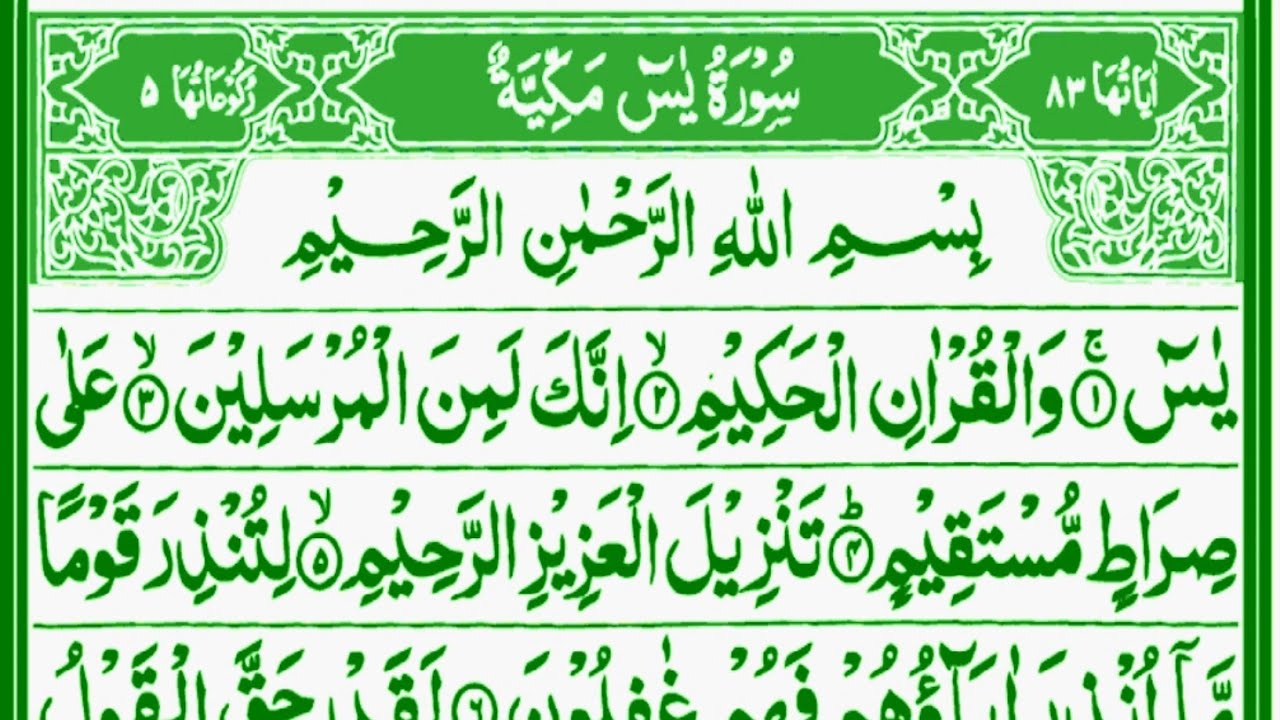 اٰيَاتُهَا ٨٣ سُوْرَةُ يٰسٓ مَكِّيَّةٌ رُكُوْعَاتُهَا ٥
بِسْمِ اللّٰهِ الرَّحْمٰنِ الرَّحِيْمِ
يٰسٓ ۚ ﴿١﴾ وَالْقُرْاٰنِ الْحَكِيْمِ ۙ ﴿٢﴾ اِنَّكَ لَمِنَ الْمُرْسَلِيْنَ ۙ ﴿٣﴾ عَلٰى
صِرَاطٍ مُّسْتَقِيْمٍ ؕ ﴿٤﴾ تَنْزِيْلَ الْعَزِيْزِ الرَّحِيْمِ ۙ ﴿٥﴾ لِتُنْذِرَ قَوْمًا
مَّاۤ اُنْذِرَ اٰبَآؤُهُمْ فَهُمْ غٰفِلُوْنَ ﴿٦﴾ لَقَدْ حَقَّ الْقَوْلُ